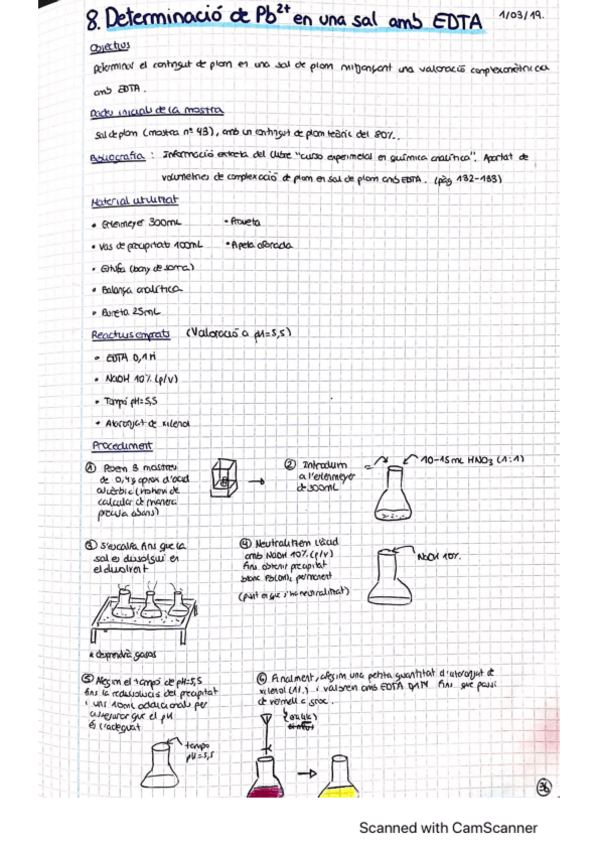 8. Determinació de Pb²⁺ en una sal amb EDTA 1/03/19.
Objectius
Determinar el contingut de plom en una sal de plom mitjançant una valoració complexomètrica
amb EDTA.
Dades inicials de la mostra
Sal de plom (mostra nº 43), amb un contingut de plom teòric del 80%.
Bibliografia : Informació extreta del llibre "curso experimental en química analítica". Apartat de
volumetries de complexació de plom en sal de plom amb EDTA. (pàg 132-133)
Material utilitzat
• Erlenmeyer 300mL • Proveta
• Vas de precipitats 100mL • Pipeta aforada
• Estufa (bany de sorra)
• Balança analítica
• Bureta 25mL
Reactius emprats (Valoració a pH=5,5)
• EDTA 0,1M
• NaOH 10% (p/v)
• Tampó pH=5,5
• Ataronjat de xilenol
Procediment
① Pesem 3 mostres
de 0,4g aprox d'àcid
ascòrbic (
calcular de manera
prèvia abans)
② Introduïm
a l'erlenmeyer
de 300mL
10-15 mL HNO₃ (1:1)
③ S'escalfa fins que la
sal es dissolgui en
el dissolvent
* desprendrà gasos
④ Neutralitzem l'àcid
amb NaOH 10% (p/v)
fins obtenir precipitat
blanc Pb(OH)₂ permanent
(punt en que s'ha neutralitzat)
NaOH 10%
⑤ Afegim el tampó de pH=5,5
fins la redissolució del precipitat
i uns 10mL addicionals per
assegurar que el pH
és l'adequat
tampó
pH=5,5
⑥ Finalment, afegim una petita quantitat d'ataronjat de
xilenol (1%) i valorem amb EDTA 0,1N fins que passi
de vermell a groc.
36
Scanned with CamScanner